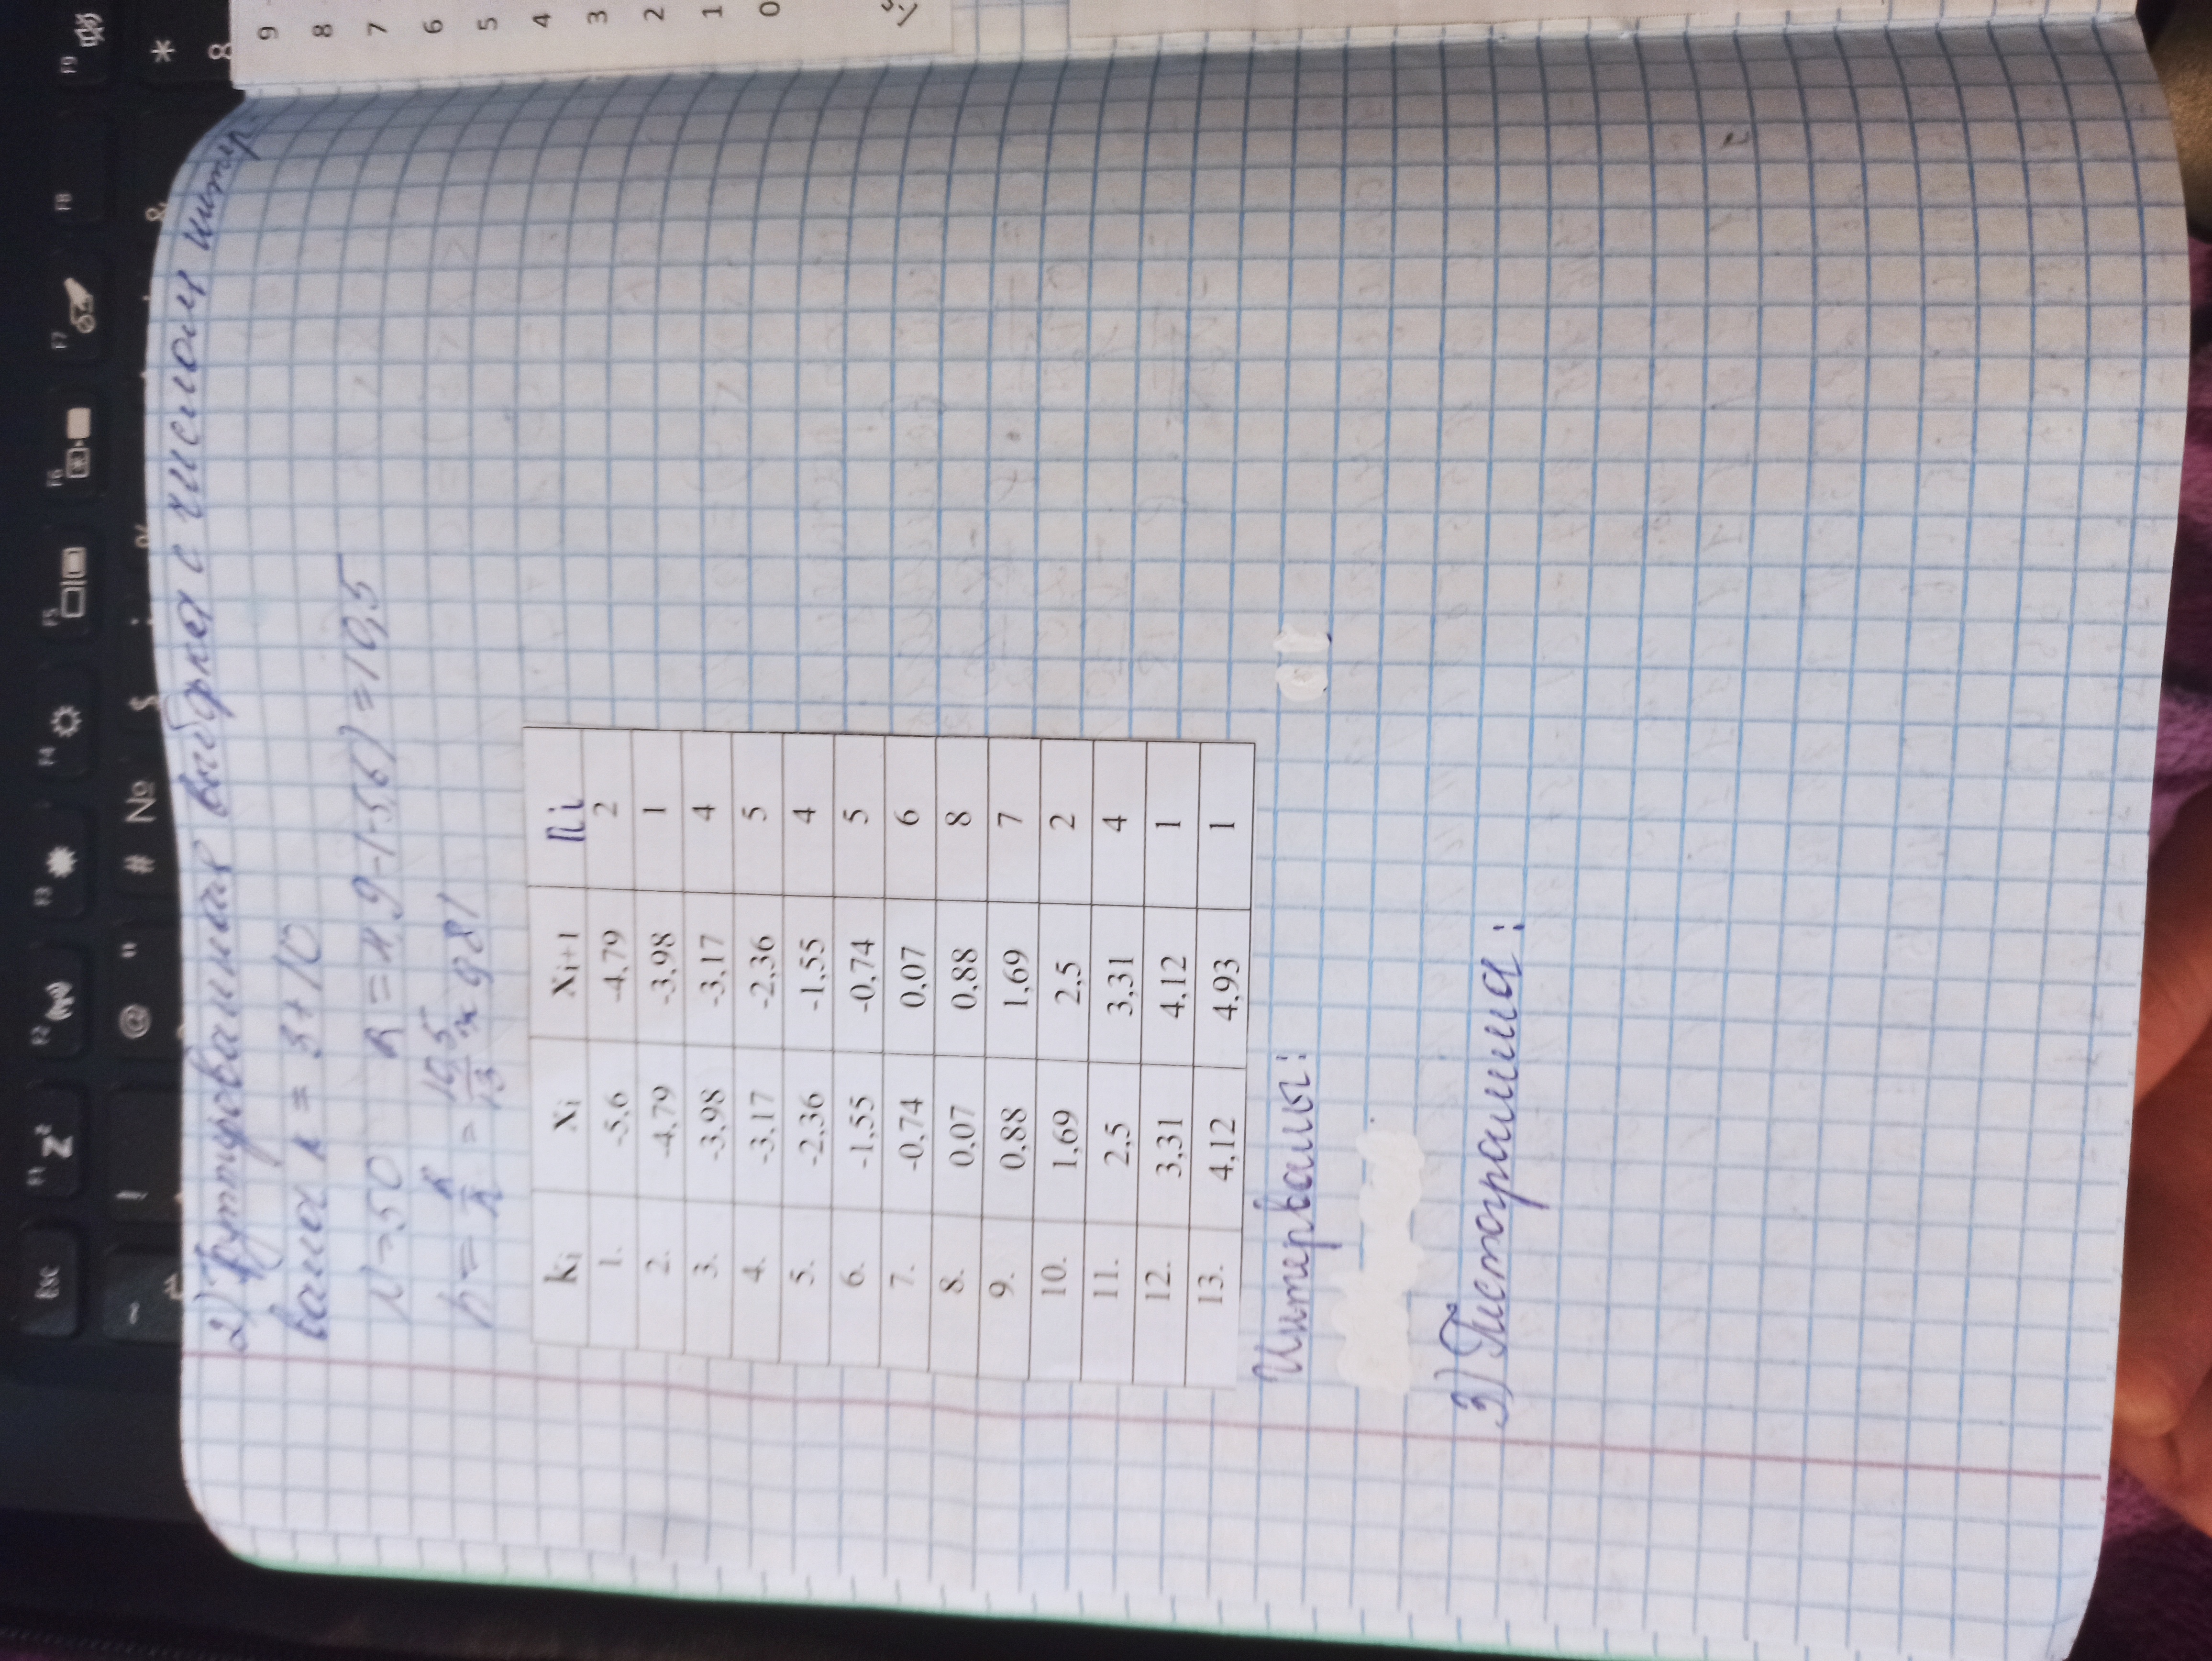 2) Группированная выборка с числом интер
валов k = 3+10
n=50 R=4,9-(-5,6)=10,5
h = R/k = 10,5/13 ≈ 0,81
ki Xi Xi+1 ni
1. -5,6 -4,79 2
2. -4,79 -3,98 1
3. -3,98 -3,17 4
4. -3,17 -2,36 5
5. -2,36 -1,55 4
6. -1,55 -0,74 5
7. -0,74 0,07 6
8. 0,07 0,88 8
9. 0,88 1,69 7
10. 1,69 2,5 2
11. 2,5 3,31 4
12. 3,31 4,12 1
13. 4,12 4,93 1
Интервалы:
3) Гистограмма:
9
8
7
6
5
4
3
2
1
0
Esc F1 F2 F3 F4 F5 F6 F7 F8 F9
~ ! @ " # № $ ; % : & * 8